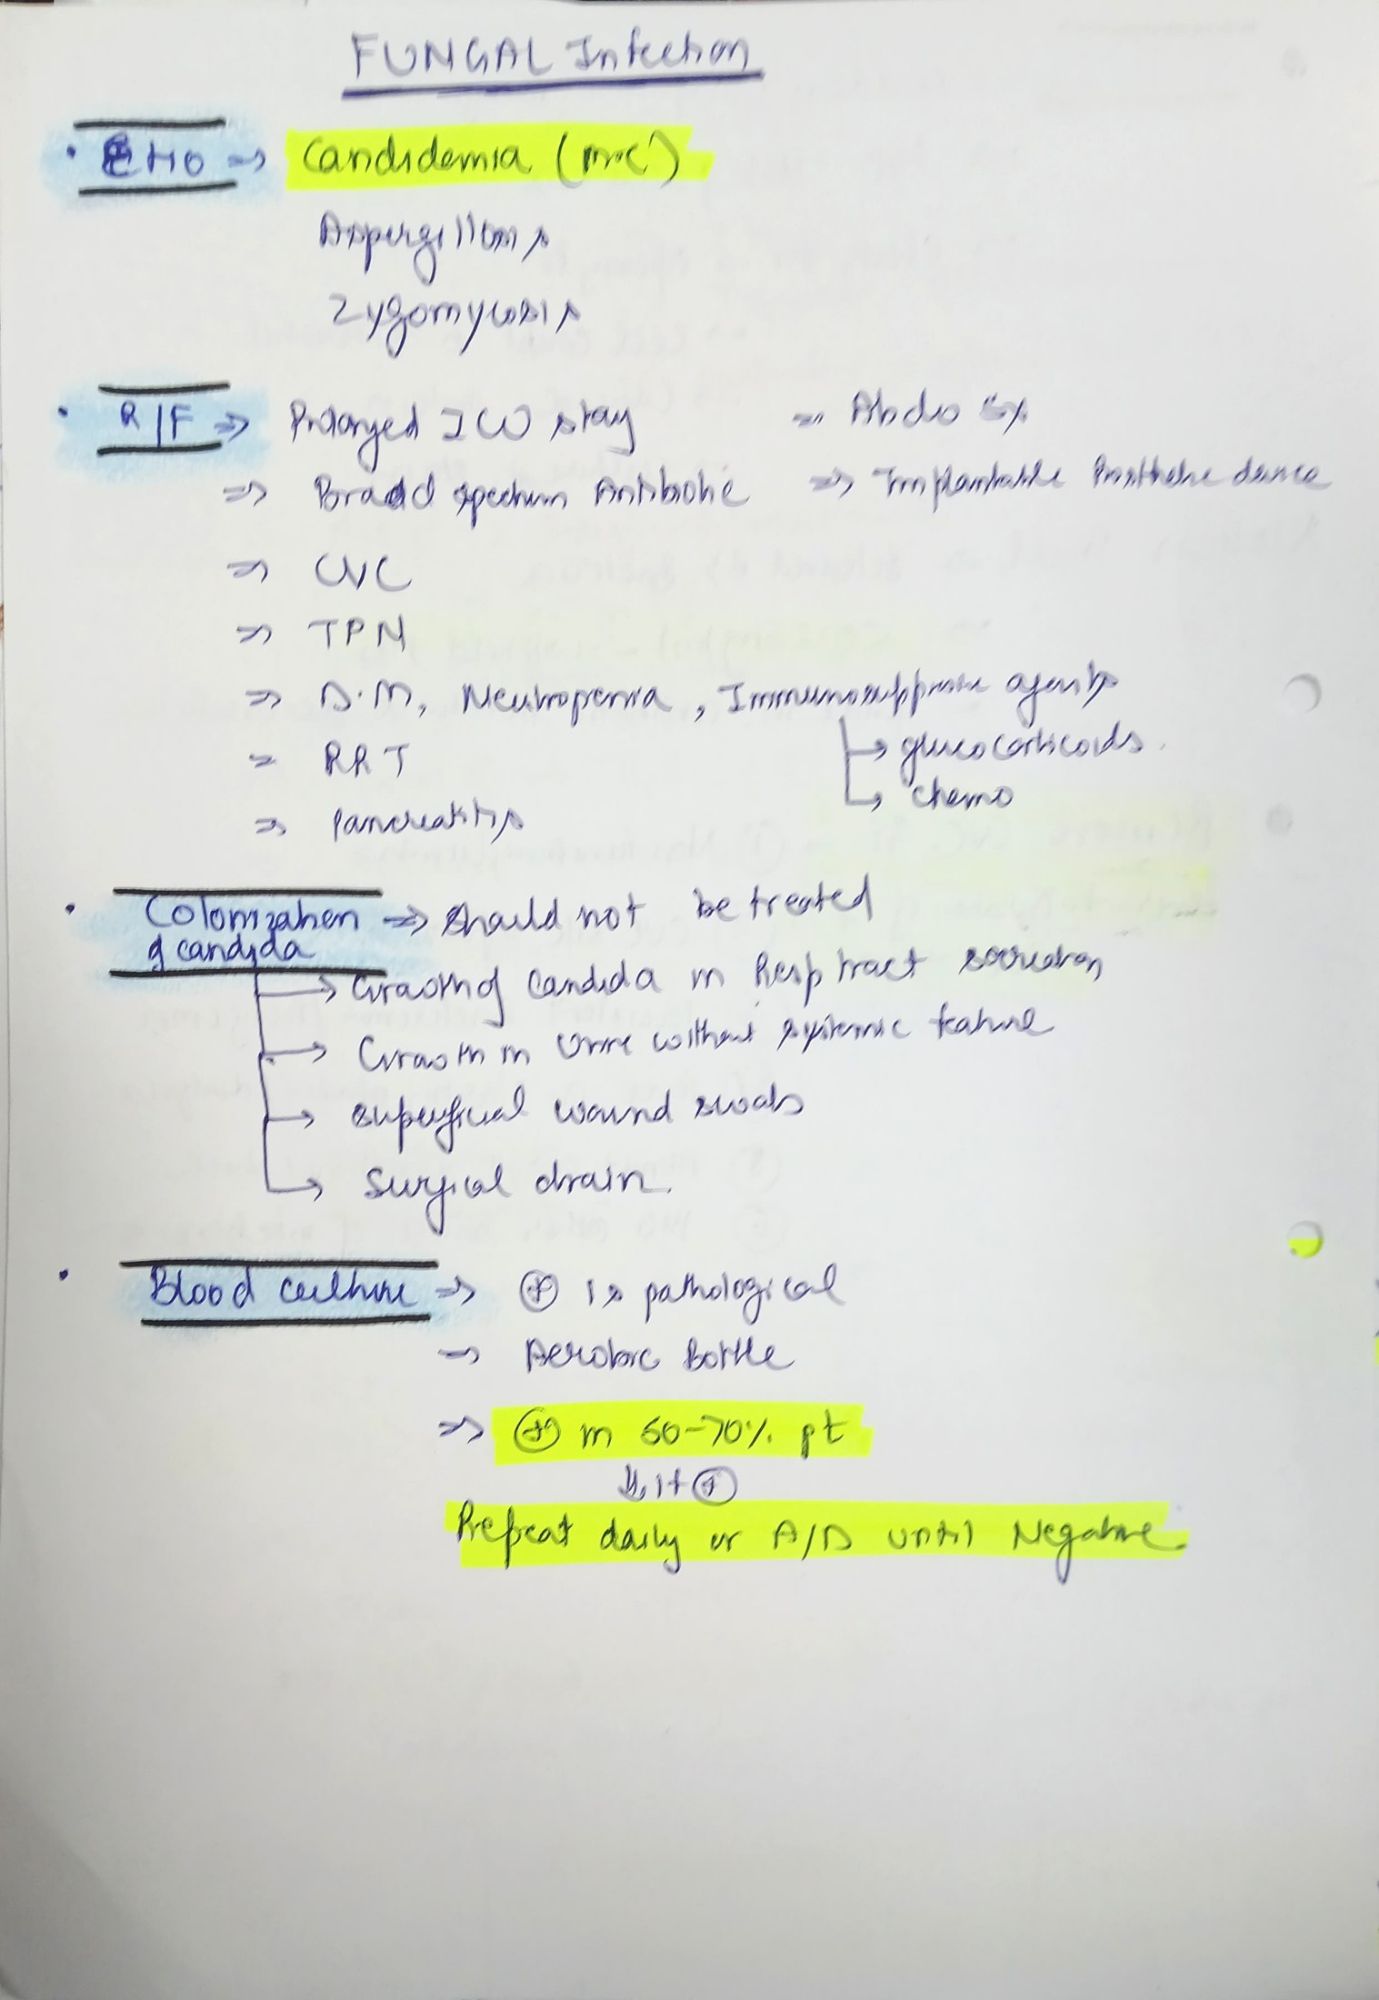 FUNGAL Infection
• ETIO ⇒ Candidemia (m.c)
Aspergillosis
Zygomycosis
• R/F ⇒ Prolonged ICU stay ⇒ Abdo Sx
⇒ Broad spectrum Antibiotic ⇒ Implantable Prosthetic device
⇒ CVC
⇒ TPN
⇒ D.M, Neutropenia, Immunosuppressive agents
→ glucocorticoids.
⇒ RRT
→ chemo
⇒ Pancreatitis
• Colonization ⇒ should not be treated
of candida
→ Growth of candida in Resp tract secretion
→ Growth in urine without systemic feature
→ superficial wound swabs
→ Surgical drain.
• Blood culture ⇒ ⊕ is pathological
⇒ Aerobic Bottle
⇒ ⊕ in 50-70% pt
⇓ if ⊕
Repeat daily or A/D until Negative.